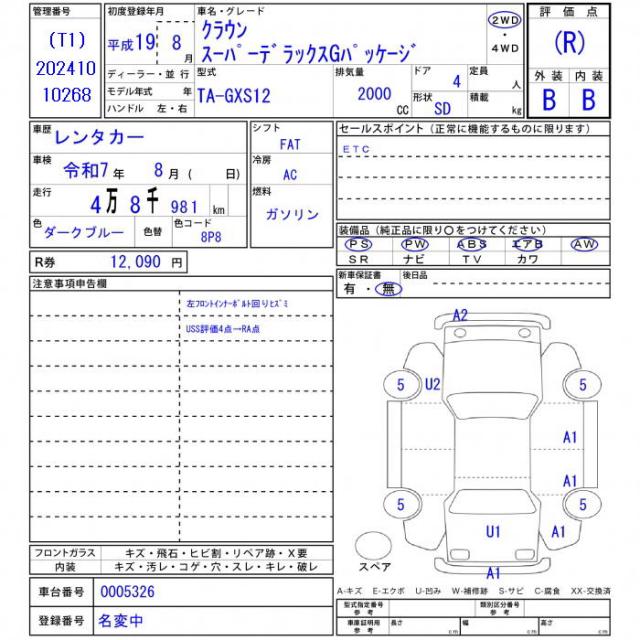 管理番号
(T1)
202410
10268
初度登録年月
平成19 8 月
ディーラー・並 行
モデル年式 年
ハンドル 左・右
車名・グレード
クラウン
スーパーデラックスGパッケージ
2WD
・
4WD
型式
TA-GXS12
排気量
2000
CC
ドア
4
定員
人
形状
SD
積載
kg
評 価 点
(R)
外 装 内 装
B B
車歴
レンタカー
車検
令和7年 8月( 日)
走行
4万 8千 981 km
色
ダークブルー
色替
色コード
8P8
シフト
FAT
冷房
AC
燃料
ガソリン
セールスポイント(正常に機能するものに限ります)
ETC
装備品(純正品に限り○をつけてください)
PS PW ABS エアB AW
SR ナビ TV カワ
新車保証書
有・無
後日品
R券 12,090 円
注意事項申告欄
左フロントインナーボルト回りヒズミ
USS評価4点→RA点
A2
5 U2 5
A1
A1
5 5
U1 A1
A1
スペア
フロントガラス キズ・飛石・ヒビ割・リペア跡・X要
内装 キズ・汚レ・コゲ・穴・スレ・キレ・破レ
車台番号 0005326
登録番号 名変中
A-キズ E-エクボ U-凹み W-補修跡 S-サビ C-腐食 XX-交換済
型式指定番号
参 考
類別区分番号
参 考
車庫証明用
参 考
長さ cm
幅 cm
高さ cm